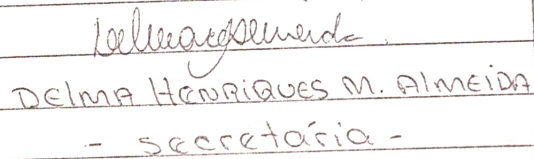 DELMA HENRIQUES M. ALMEIDA
- secretária -